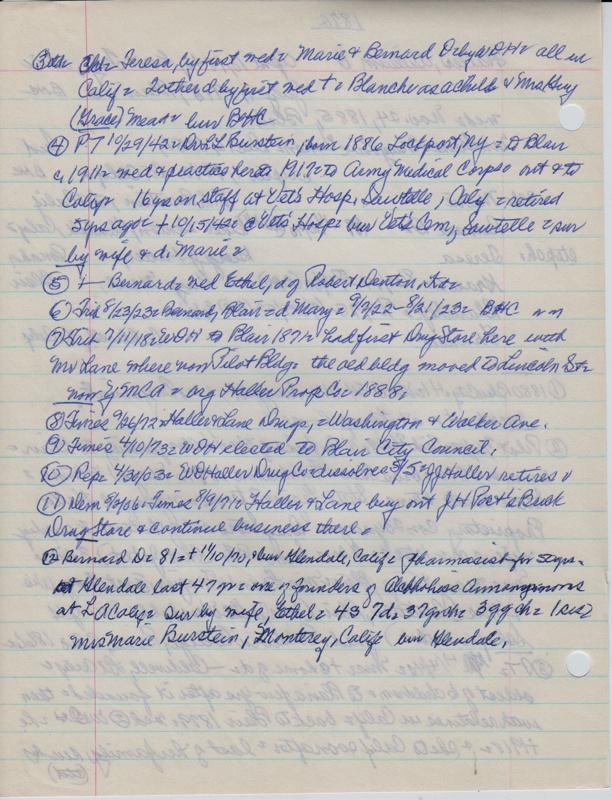 ③ Ch= Teresa, by first med= Marie & Bernard D by WDH= all in
Calif= 2 other d by first med + = Blanche as a child & Mrs Guy
(Grace) Mean= bur BHC
④ PT 10/29/42= Dr L Burstein, born 1886 Lockport, Ny= to Blair
c, 1911= med & practice here to 1917= to Army Medical Corps out & to
Calif= 16 yrs on staff at Vet's Hosp. Sawtelle, Calif= retired
5 yrs ago= + 10/15/42= @ Vet's Hosp= bur Vet's Cem, Sawtelle= sur
by wife & d. Marie=
⑤ + — Bernard= med Ethel, d of Robert Denton,
⑥ Trib 8/23/23= Bernard, Blair= d Mary= 9/9/22 – 8/21/23= BHC
⑦ Trib 7/11/18= WDH to Blair 1871= had first Drug Store here with
Mr Lane where now Pilot Bldg= the old bldg moved to Lincoln St=
now YMCA= org Haller Prop Co= 1888,
⑧ Times 9/26/72= Haller & Lane Drugs, = Washington & Walker Ave.
⑨ Times 4/10/73= WDH elected to Blair City Council,
⑩ Rep= 4/30/03= WDHaller Drug Co= dissolves 8/5= JJ Haller retires
⑪ Dem 8/3/06= Times 8/9/71= Haller & Lane buy out J H
Drug Store & continue business there=
⑫ Bernard D= 81= + 11/10/70, = bur Glendale, Calif= Pharmacist for 50 yrs=
Glendale last 47 yr= one of founders of
at L A Calif= sur by wife, Ethel= 4s 7d= 37 gch= 3 ggch= 1 sis=
Mrs Marie Burstein, Monterey, Calif bur Glendale,